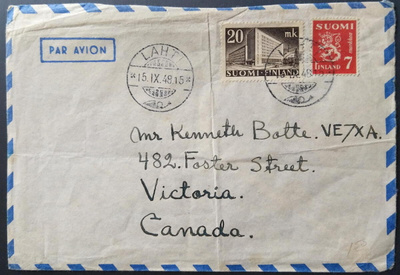 PAR AVION
LAHTI
15.IX.48.15
20 mk
SUOMI-FINLAND
SUOMI
FINLAND 7
Mr Kenneth Botte. VE7XA.
482. Foster Street.
Victoria.
Canada.